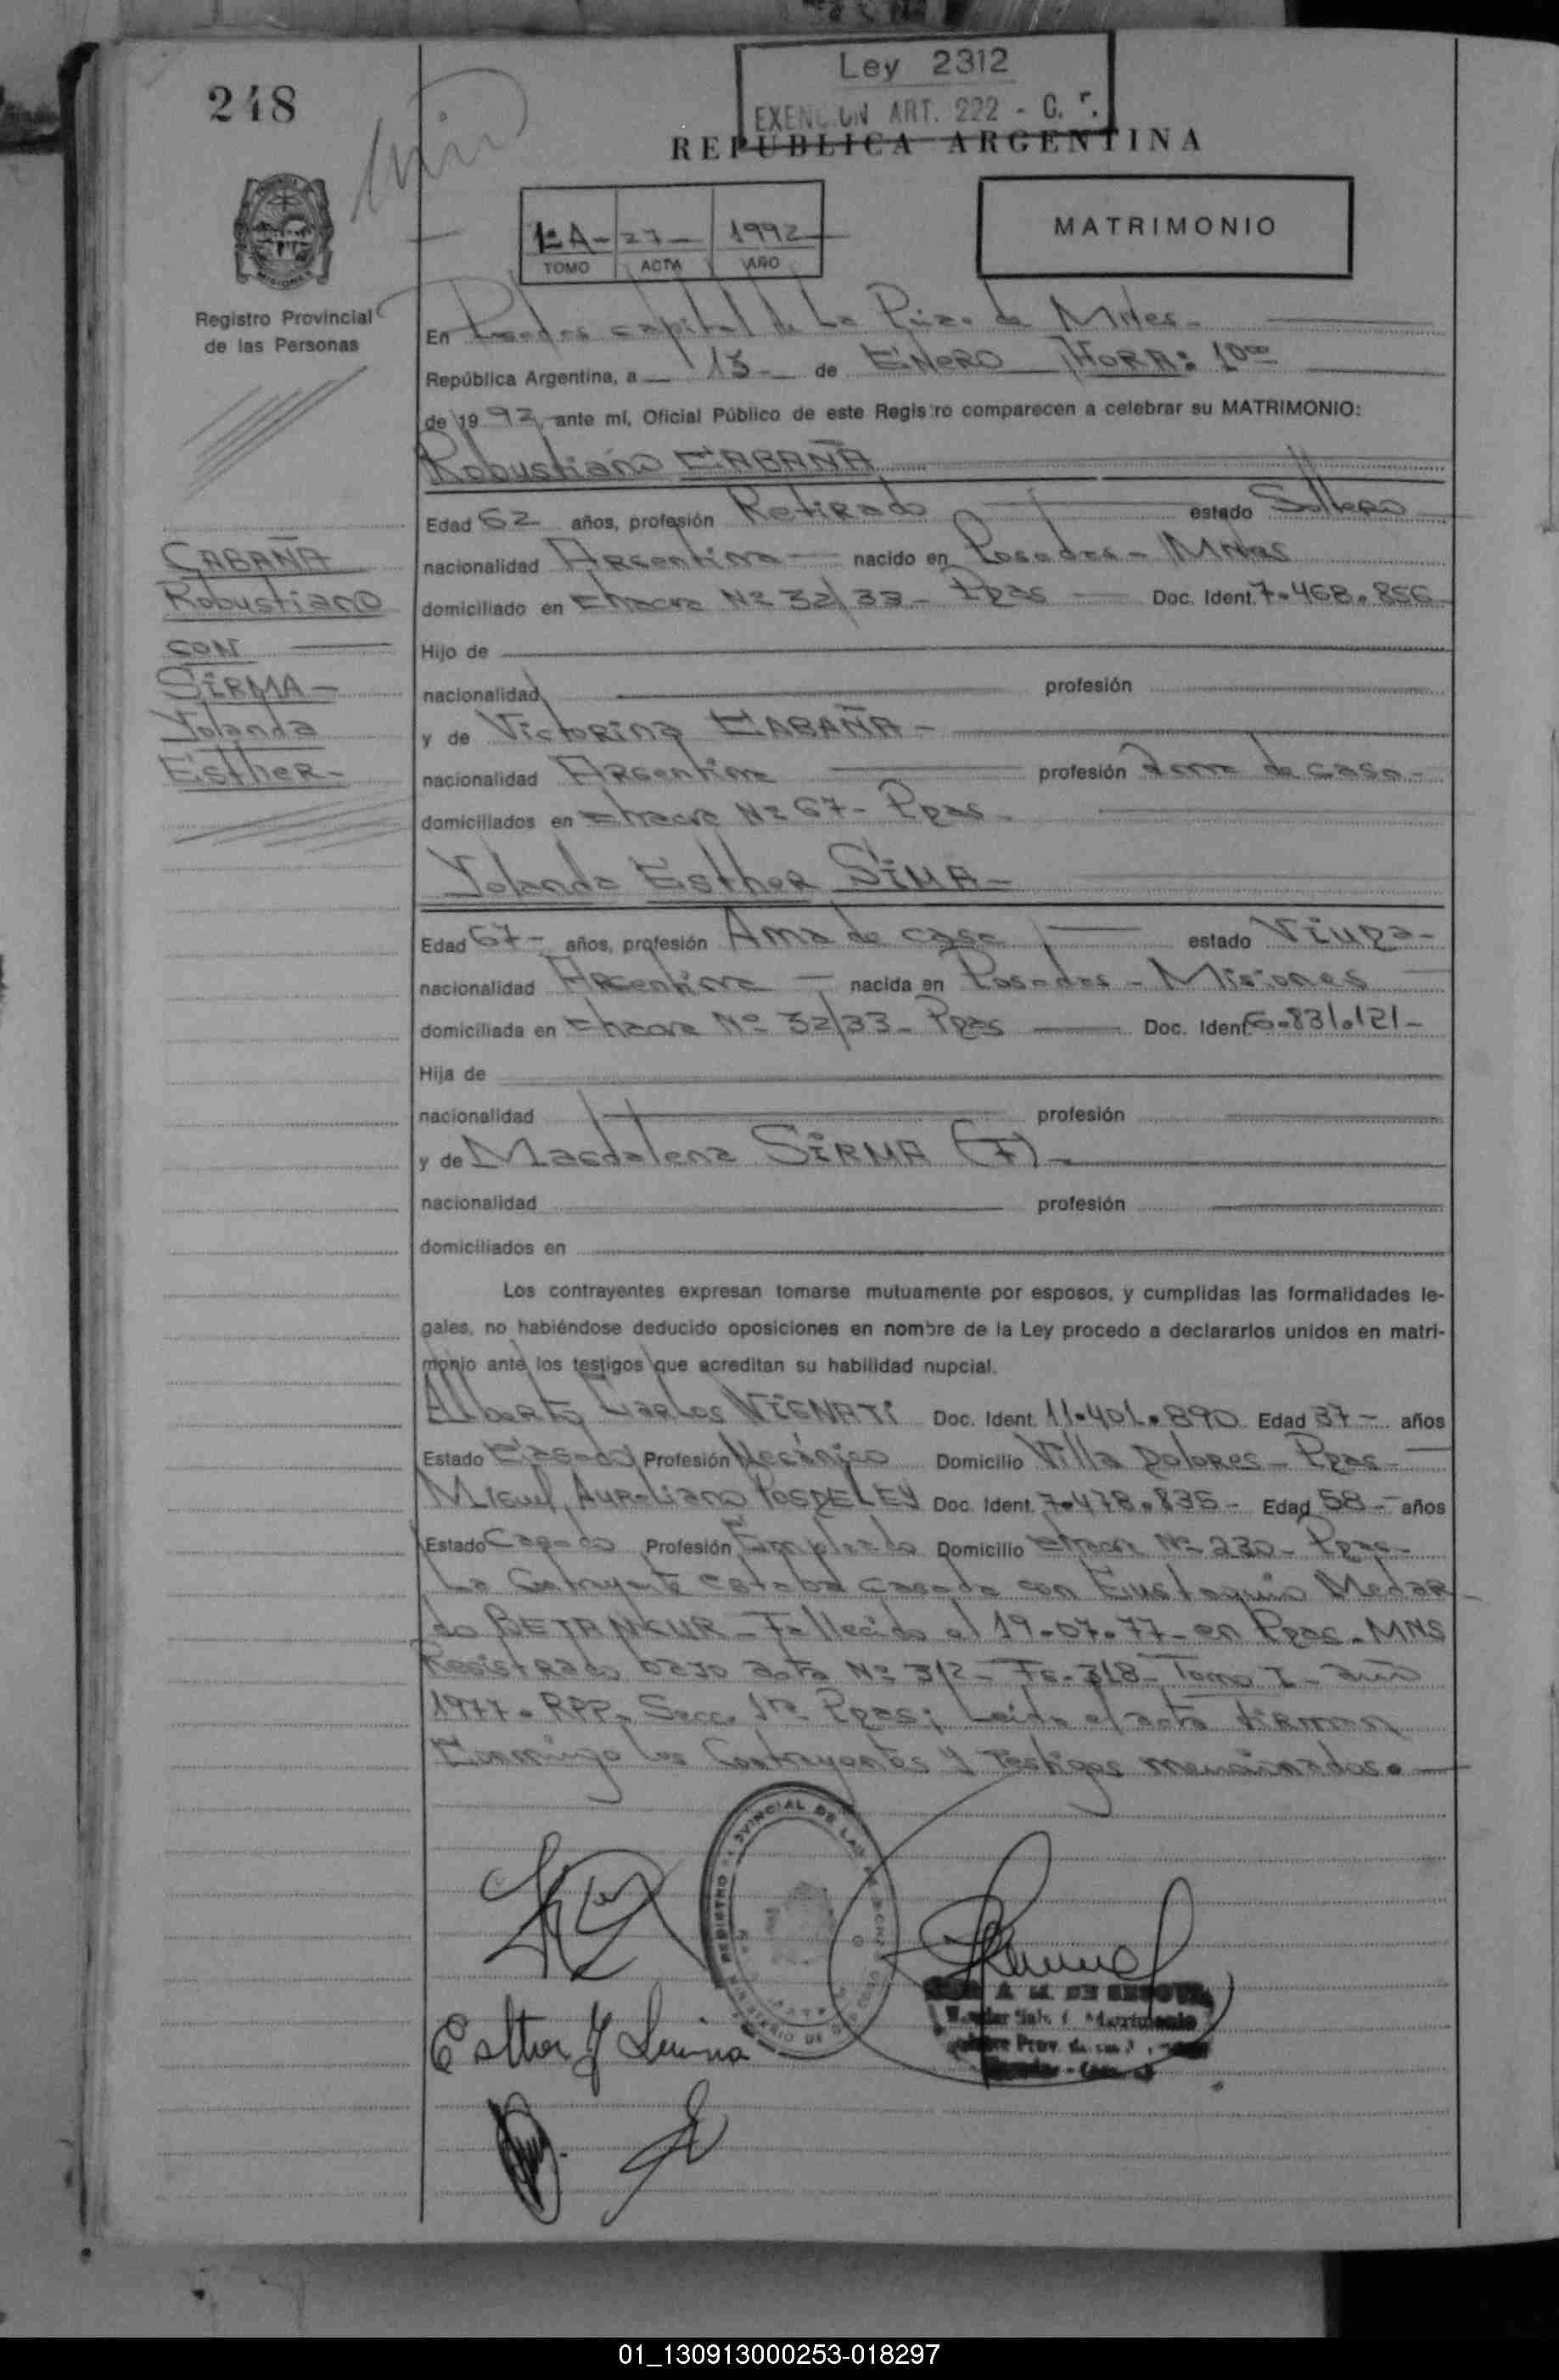 248
Ley 2312
EXENCION ART. 222 - C.
REPUBLICA ARGENTINA
1º A- 27- 1992
TOMO ACTA AÑO
MATRIMONIO
Registro Provincial
de las Personas
En Posadas capital de La Pcia. de Mnes.
República Argentina, a 13- de ENERO HORA: 10ºº
de 1992, ante mí, Oficial Público de este Registro comparecen a celebrar su MATRIMONIO:
Robustiano CABAÑA
Edad 62 años, profesión Retirado estado Soltero
nacionalidad Argentina nacido en Posadas - Mnes
domiciliado en Chacra Nº 32/33 - Ppas Doc. Ident. 7.468.856
Hijo de
nacionalidad profesión
y de Victorina CABAÑA -
nacionalidad Argentina profesión Ama de casa -
domiciliados en Chacra Nº 67 - Ppas.
CABAÑA
Robustiano
CON
SIRMA -
Yolanda
Esther -
Yolanda Esther SIMA -
Edad 67- años, profesión Ama de casa estado Viuda -
nacionalidad Argentina nacida en Posadas - Misiones
domiciliada en Chacra Nº 32/33 - Ppas Doc. Ident. 6.831.121 -
Hija de
nacionalidad profesión
y de Magdalena SIRMA (F) -
nacionalidad profesión
domiciliados en
Los contrayentes expresan tomarse mutuamente por esposos, y cumplidas las formalidades le-
gales, no habiéndose deducido oposiciones en nombre de la Ley procedo a declararlos unidos en matri-
monio ante los testigos que acreditan su habilidad nupcial.
Alberto Carlos VIGNATI Doc. Ident. 11.401.890 Edad 37 - años
Estado Casado Profesión Mecánico Domicilio Villa Dolores - Ppas -
Miguel Aureliano POSDELEY Doc. Ident. 7.478.835 - Edad 58 - años
Estado Casado Profesión Empleado Domicilio Chacra Nº 230 - Ppas -
La Contrayente estaba casada con Eustaquio Medar-
do BETANKUR - Fallecido el 19-07-77- en Ppas - MNS
Registrado bajo acta Nº 312 - Fº - 318 - Tomo I - año
1977 - RPP. Secc. 1ra Ppas; Leída el acta firman
Conmigo los Contrayentes y Testigos mencionados.
REGISTRO PROVINCIAL DE LAS
MINISTERIO DE
Esther Y
01_130913000253-018297